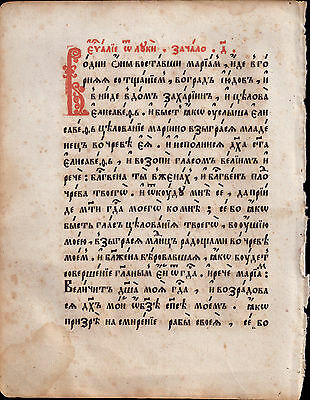 Еѵⷢ҇алїе ѿ лꙋкѝ , зача́ло . д҃ .
Во дни ѻ҆́ны воста́вши марїа́мъ , и҆́де в го
рнѧѧ со тща́нїемъ , во гра́дъ ію́довъ , и҆
вни́де в до́мъ заха́рїинъ , и҆ цѣлова̀
є҆лисаве́ѳь , и҆ бы́сть ꙗ҆́кѡ ᲂу҆слы́ша є҆ли
саве́ѳь цѣлова́нїе марі́ино взыгра́сѧ младе
нецъ во чре́вѣ є҆ѧ̀ . и҆ и҆спо́лнисѧ дх҃а ст҃а
є҆лисаве́ѳь , и҆ возопѝ гла́сомъ ве́лїимъ и҆
речѐ : бл҃гве́на ты̀ в женáхъ , и҆ бл҃гве́нъ пло́
чре́ва твоегѡ̀ . ѿкꙋ́дꙋ мнѣ̀ сѐ , да прїи
де мт҃и гд҇а моегѡ̀ ко мнѣ̀ : се́ бо ꙗ҆́кѡ
бы́сть гла́съ цѣлова́нїѧ твоегѡ̀ , во ᲂу҆́шїю
мое́ю , взыгра́сѧ мл҃нцъ ра́дощами во чре́вѣ
мое́мъ . и҆ бл҃же́на вѣ́ровавшаѧ , ꙗ҆́кѡ бꙋ́детъ
соверше́нїе гл҃аннымъ є҆́й ѿ гд҇а . и҆ речѐ марїа́мъ
Вели́читъ дш҃а моѧ̀ гд҇а , и҆ возра́дова
сѧ дх҃ъ мо́й ѡ҆ бз҃ѣ сп҃сѣ мое́мъ . ꙗ҆́кѡ
призрѣ̀ на смире́нїе рабы̀ своеѧ̀ , се́ бо